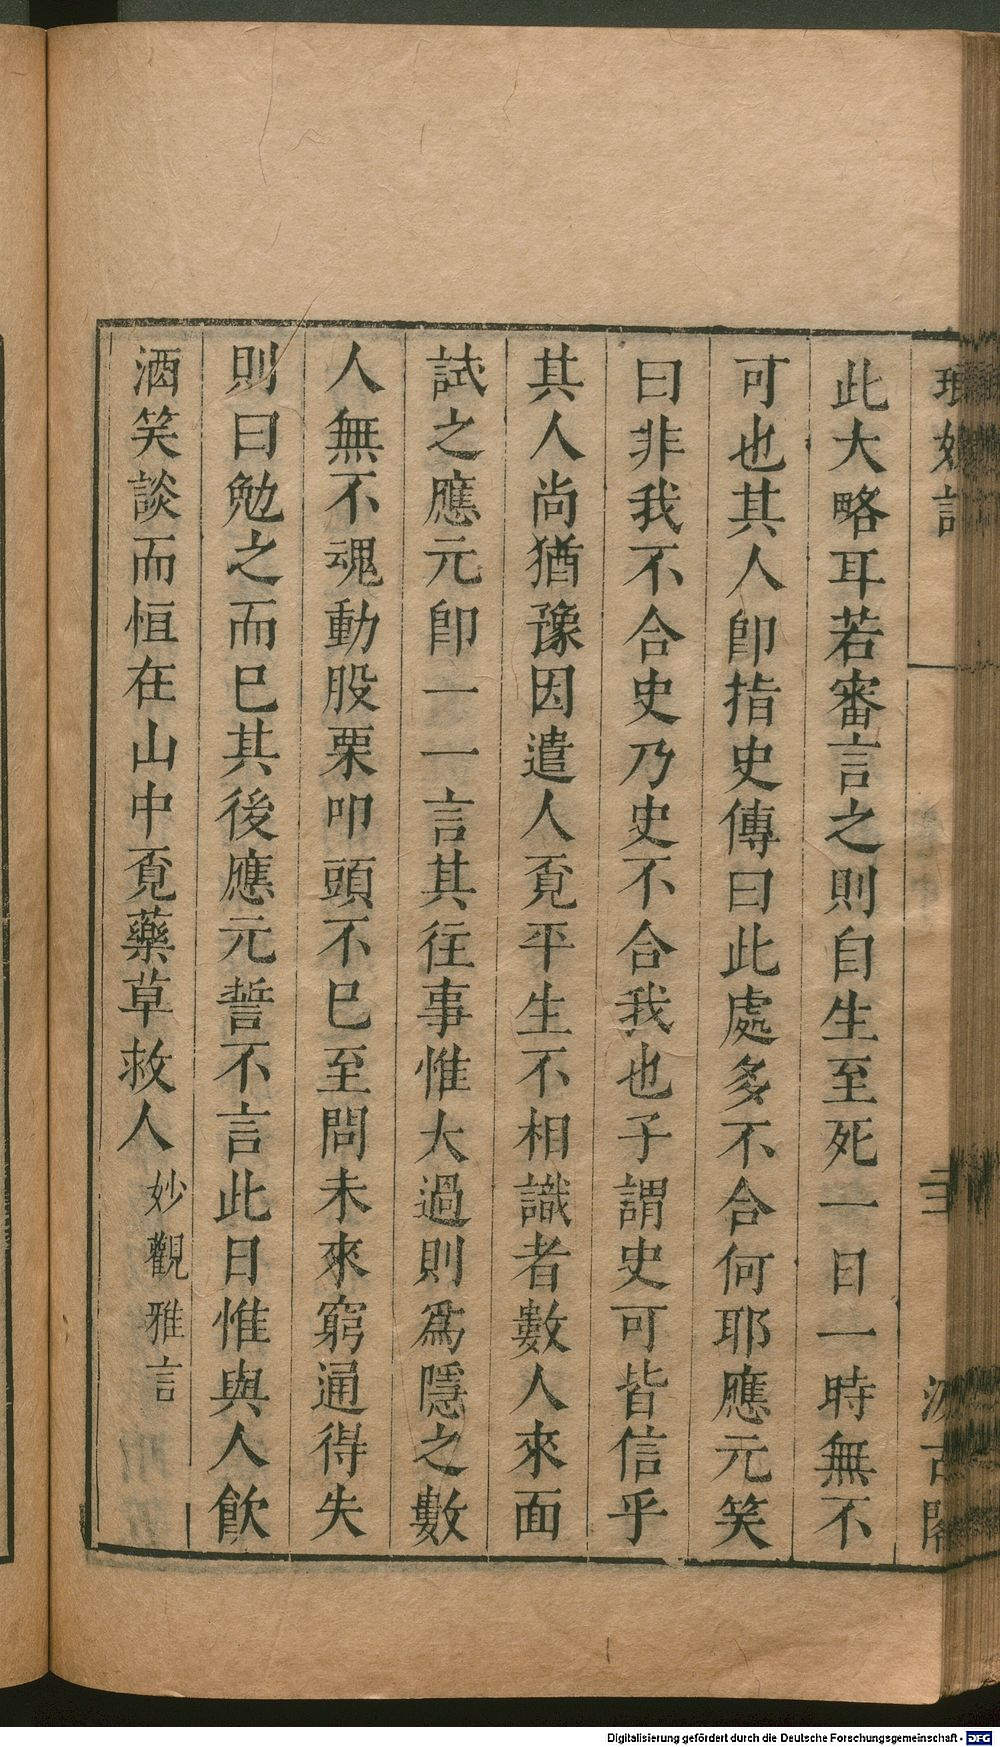 此大略耳若審言之則自生至死一日一時無不
可也其人卽指史傳曰此處多不合何耶應元笑
曰非我不合史乃史不合我也子謂史可皆信乎
其人尚猶豫因遣人覔平生不相識者數人來面
試之應元卽一一言其往事惟大過則爲隱之數
人無不魂動股栗叩頭不巳至問未來窮通得失
則曰勉之而巳其後應元誓不言此日惟與人飮
酒笑談而恒在山中覔藥草救人 妙觀雅言
Digitalisierung gefördert durch die Deutsche Forschungsgemeinschaft - DFG